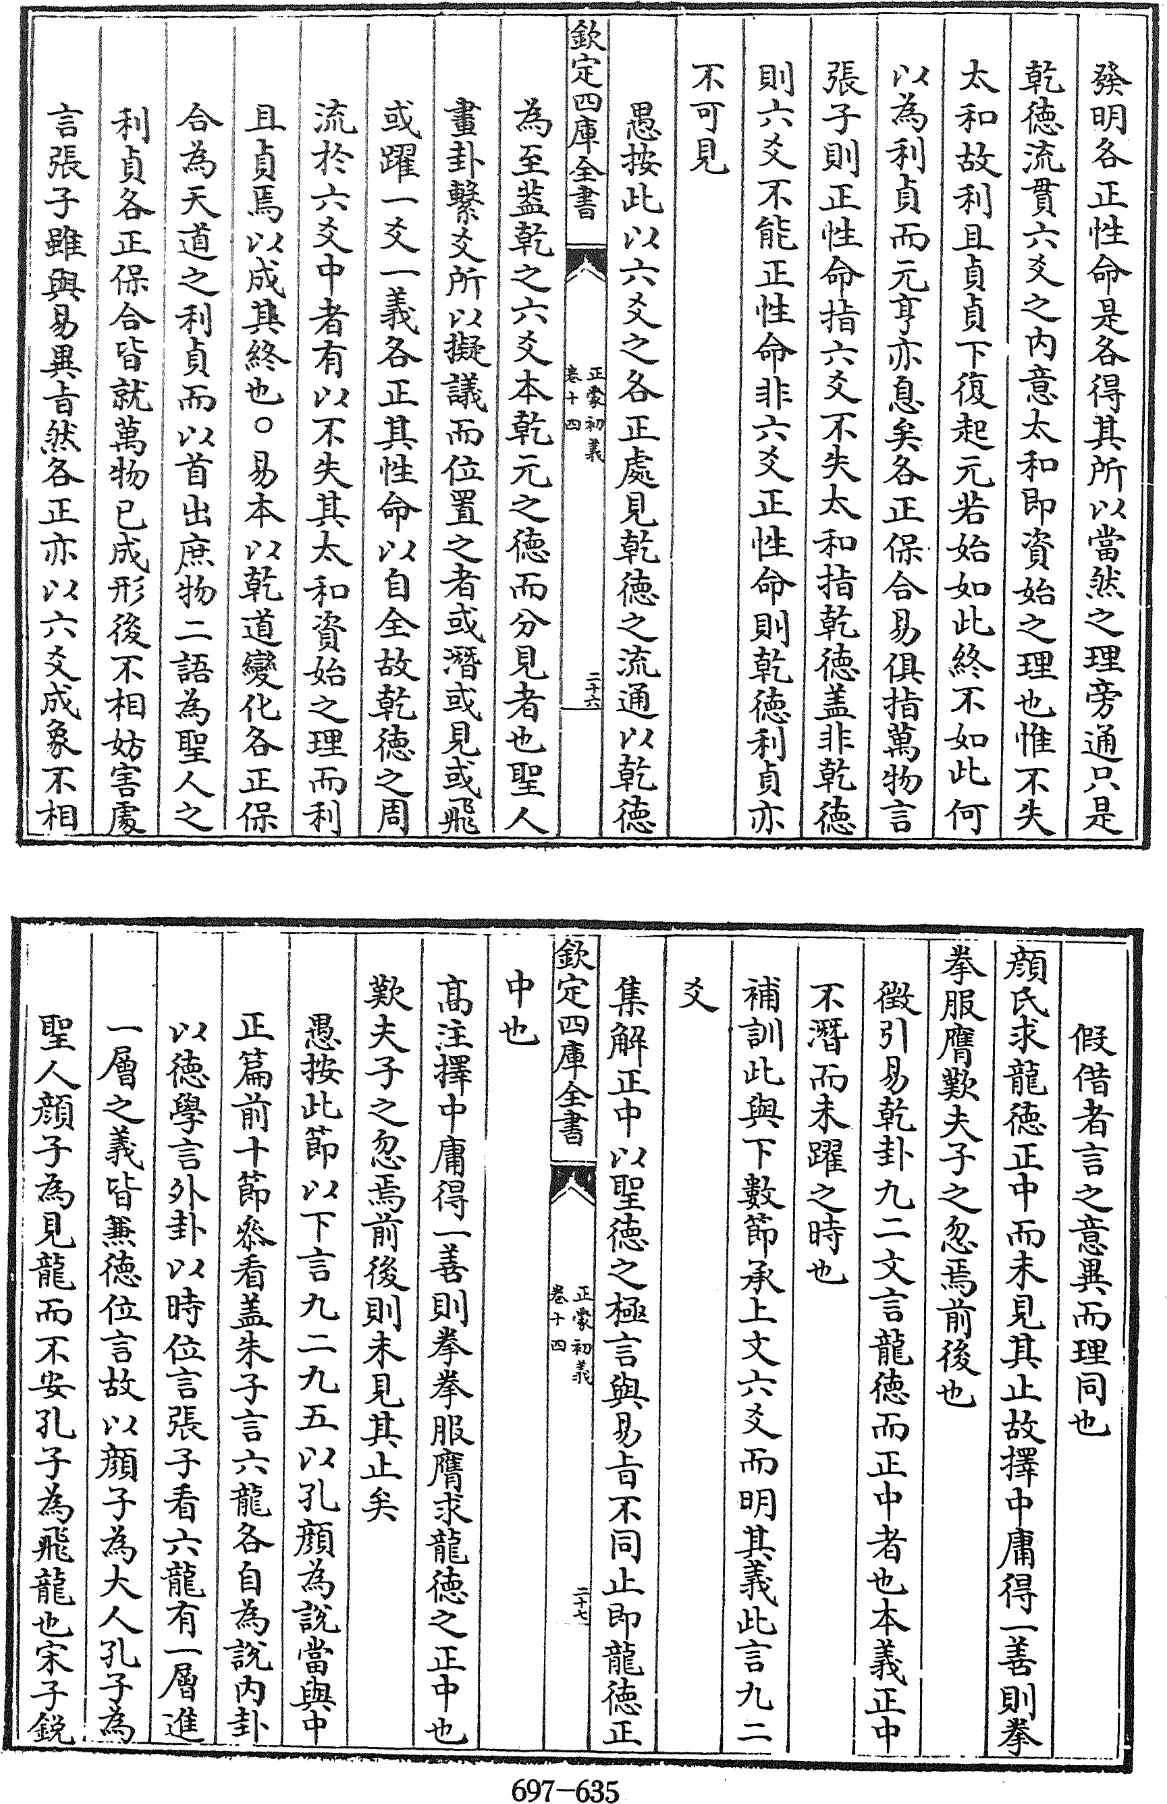 發明各正性命是各得其所以當然之理旁通只是
乾德流貫六爻之内意太和即資始之理也惟不失
太和故利且貞貞下復起元若始如此終不如此何
以為利貞而元亨亦息矣各正保合易俱指萬物言
張子則正性命指六爻不失太和指乾德盖非乾德
則六爻不能正性命非六爻正性命則乾德利貞亦
不可見
愚按此以六爻之各正處見乾德之流通以乾德
欽定四庫全書
正蒙初義
卷十四
二十六
為至葢乾之六爻本乾元之德而分見者也聖人
畫卦繫爻所以擬議而位置之者或潛或見或飛
或躍一爻一義各正其性命以自全故乾德之周
流於六爻中者有以不失其太和資始之理而利
且貞焉以成其終也○易本以乾道變化各正保
合為天道之利貞而以首出庶物二語為聖人之
利貞各正保合皆就萬物已成形後不相妨害處
言張子雖與易異旨然各正亦以六爻成象不相
假借者言之意異而理同也
顔氏求龍德正中而未見其止故擇中庸得一善則拳
拳服膺歎夫子之忽焉前後也
徴引易乾卦九二文言龍德而正中者也本義正中
不潛而未躍之時也
補訓此與下數節承上文六爻而明其義此言九二
爻
集解正中以聖德之極言與易旨不同止即龍德正
欽定四庫全書
正蒙初義
卷十四
二十七
中也
高注擇中庸得一善則拳拳服膺求龍德之正中也
歎夫子之忽焉前後則未見其止矣
愚按此節以下言九二九五以孔顔為說當與中
正篇前十節叅看盖朱子言六龍各自為說内卦
以德學言外卦以時位言張子看六龍有一層進
一層之義皆兼德位言故以顔子為大人孔子為
聖人顔子為見龍而不安孔子為飛龍也宋子鋭
697-635